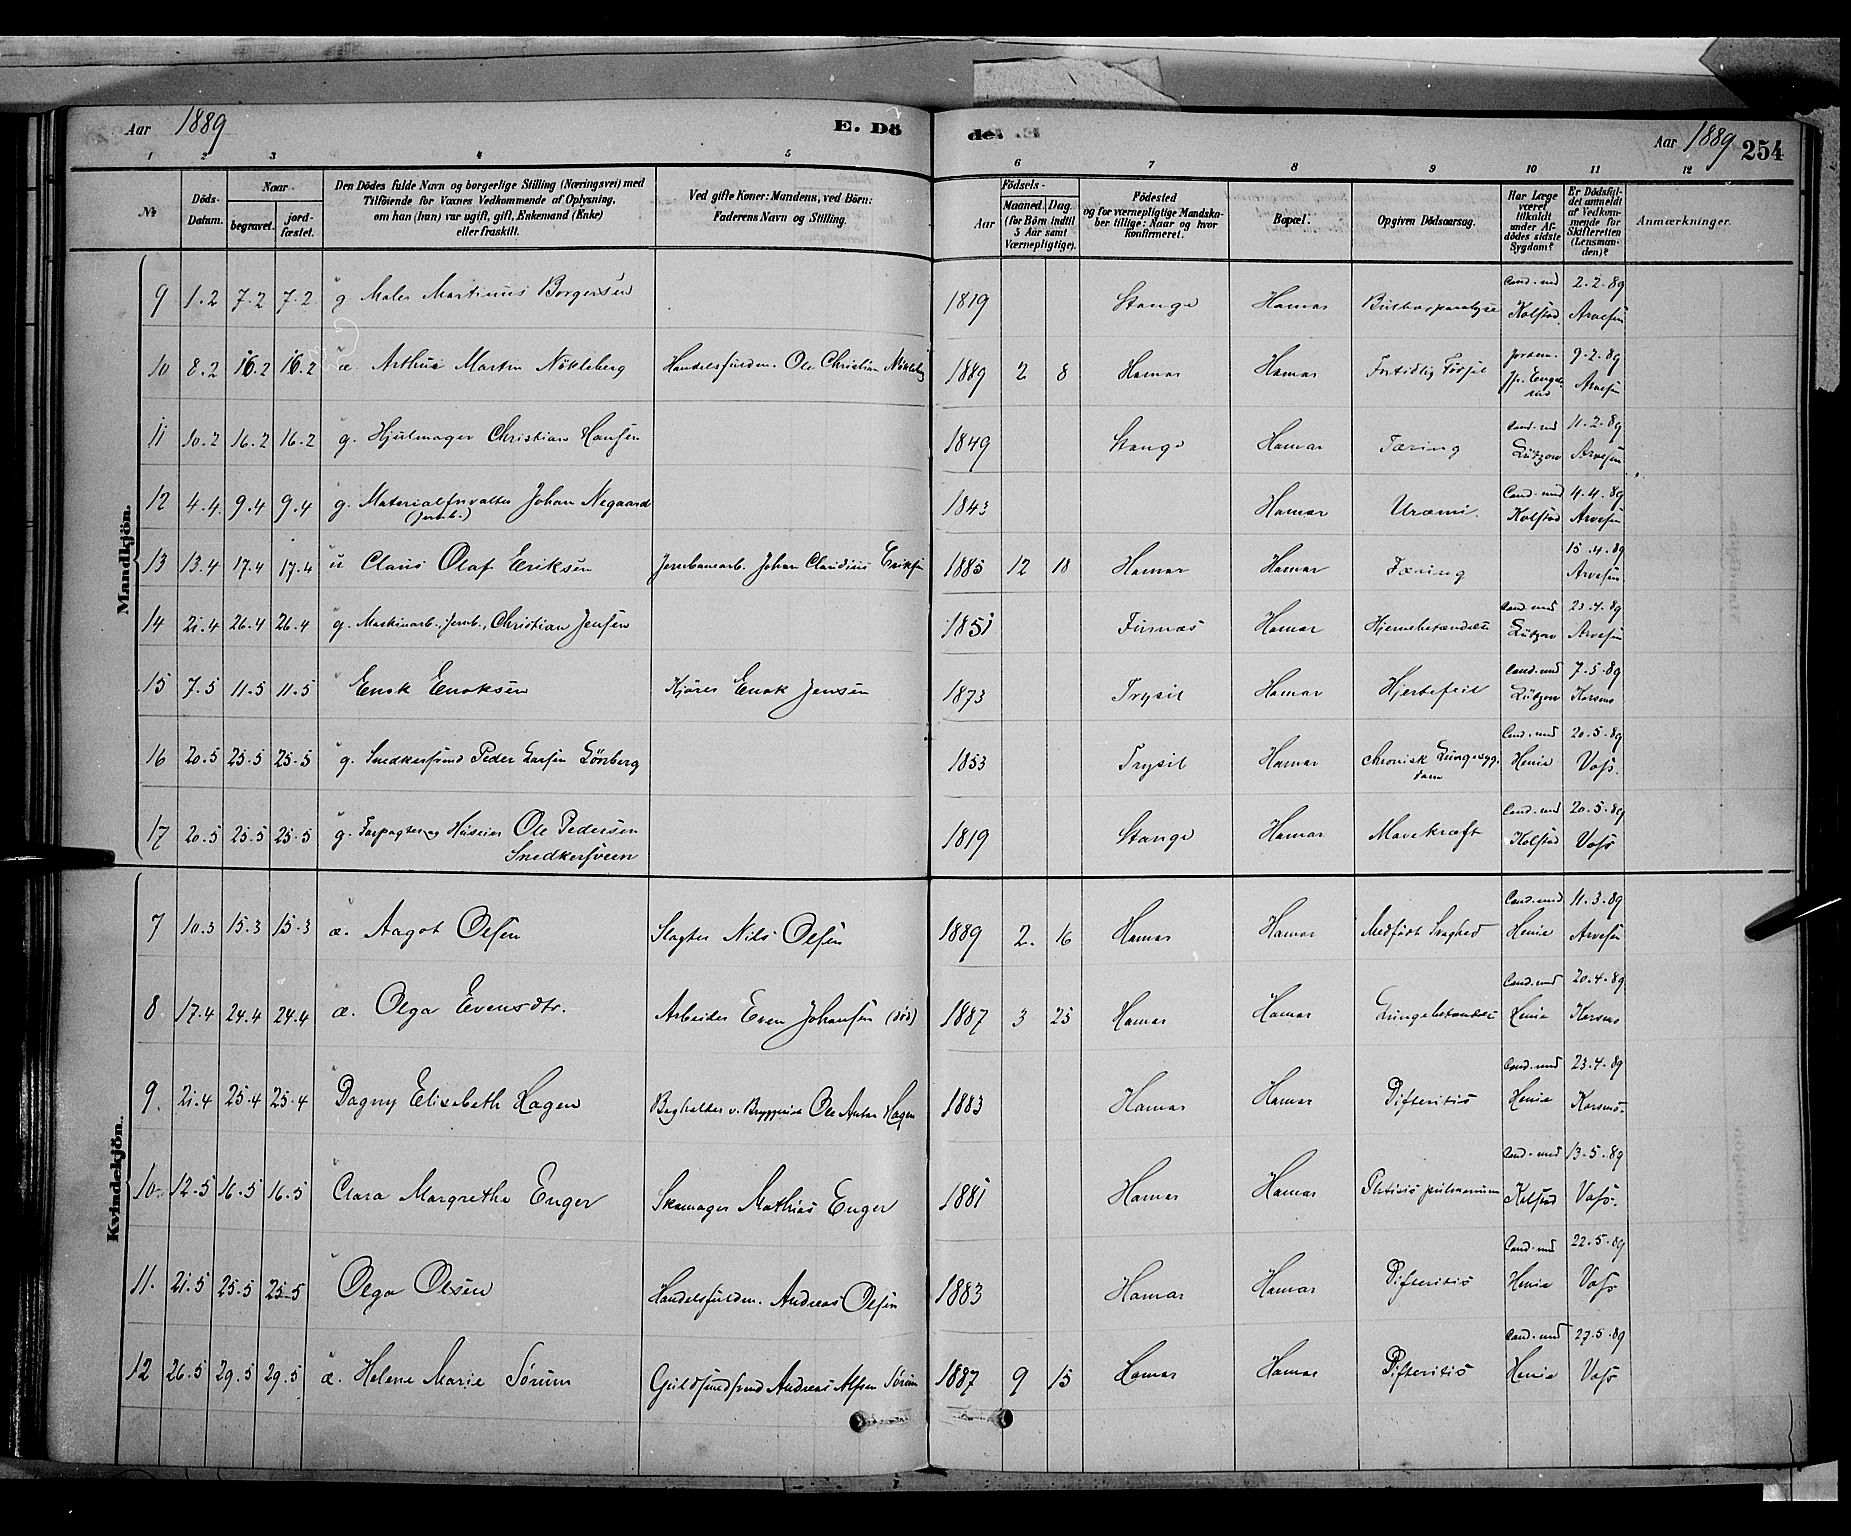 Aar 1889
E. Dö
de.
Aar 1889 254
1 2 3 4 5 6 7 8 9 10 11 12
№
Döds-Datum.
Naar
begravet.
jord-fæstet.
Den Dödes fulde Navn og borgerlige Stilling (Næringsvei) med
Tilföiende for Voxnes Vedkommende af Oplysning,
om han (hun) var ugift, gift, Enkemand (Enke)
eller fraskilt.
Ved gifte Koner: Mandens, ved Börn:
Faderens Navn og Stilling.
Födsels-
Aar
Maaned. Dag.
(for Börn indtil
5 Aar samt
Værnepligtige).
Födested
og for værnepligtige Mandska-
ber tillige: Naar og hvor
konfirmeret.
Bopæl.
Opgiven Dödsaarsag.
Har Læge
været
tilkaldt
under Af-
dödes sidste
Sygdom?
Er Dödsfal-
det anmeldt
af Vedkom-
mende for
Skifteretten
(Lensman-
den)?
Anmærkninger.
Mandkjön.
9 1.2 7.2 7.2 g Maler Martinus Borgersen 1819 Stange Hamar Bulbærparalyse Cand. med Kolstad 2.2.89 Arvesen
10 8.2 16.2 16.2 æ. Arthur Martin Nökleberg Handelsfuldm. Ole Christian Nökleberg 1889 2 8 Hamar Hamar Fortidlig Födsel Jordem. 9.2.89 Arvesen
11 10.2 16.2 16.2 g. Hjulmager Christian Hansen 1849 Stange Hamar Tæring Cand. med Lützow 11.2.89 Arvesen
12 4.4 9.4 9.4 g. Materialforvalter Johan Negaard (Jernb.) 1843 Hamar Uræmi. Cand. med Kolstad 4.4.89 Arvesen
13 13.4 17.4 17.4 u Claus Olaf Eriksen Jernbanearb. Johan Claudius Eriksen 1885 12 18 Hamar Hamar Tæring 15.4.89 Arvesen
14 21.4 26.4 26.4 g. Maskinarb., Jernb., Christian Jensen 1851 Furnæs Hamar Hjernebetændelse Cand. med Lützow 23.4.89 Arvesen
15 7.5 11.5 11.5 Enok Enoksen Kjører Enok Jensen 1873 Trysil Hamar Hjertefeil Cand. med Lützow 7.5.89 Korsmo
16 20.5 25.5 25.5 g. Snedkersvend Peder Larsen Lönberg 1853 Trysil Hamar Chronisk Lungesygdom Cand. med Henie 20.5.89 Voss.
17 20.5 25.5 25.5 g. Forpagter og Huseier Ole Pedersen Snedkersveen 1819 Stange Hamar Mavekræft Cand. med Kolstad 20.5.89 Voss
Kvindekjön.
7 10.3 15.3 15.3 æ. Aagot Olsen Slagter Nils Olsen 1889 2. 16 Hamar Hamar Medfödt Svaghed Cand. med Henie 11.3.89 Arvesen
8 17.4 24.4 24.4 æ. Olga Evensdtr. Arbeider Even Johansen (död) 1887 3 25 Hamar Hamar Lungebetændelse Cand. med Henie 20.4.89 Korsmo
9. 21.4 25.4 25.4 Dagny Elisabeth Hagen Bogholder v. Bryggeriet Ole Anton Hagen 1883 Hamar Hamar Difteritis Cand. med Henie 23.4.89 Korsmo.
10. 12.5 16.5 16.5 Clara Margrethe Enger Skomager Mathias Enger 1881 Hamar Hamar Phtisis pulmonum Cand. med Kolstad 13.5.89 Voss.
11. 21.5 25.5 25.5 Olga Olsen Handelsfuldm. Andreas Olsen 1883 Hamar Hamar Difteritis Cand. med Henie 22.5.89 Voss
12 26.5 29.5 29.5 æ. Helene Marie Sørum Guldsmedsvend Andreas Alfsen Sørum 1887 9 15 Hamar Hamar Difteritis Cand. med Henie 27.5.89 Voss